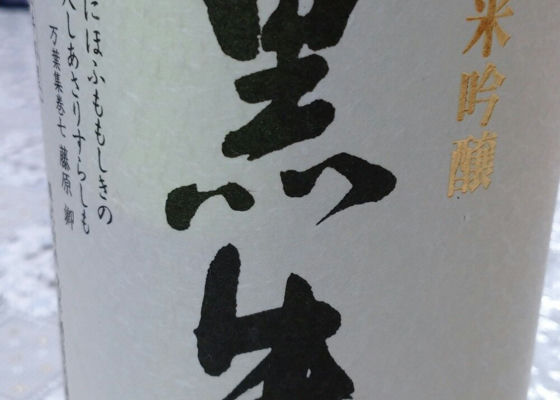 米吟醸
黒牛
にほふももしきの
人しあさりすらしも
万葉集巻七 藤原卿